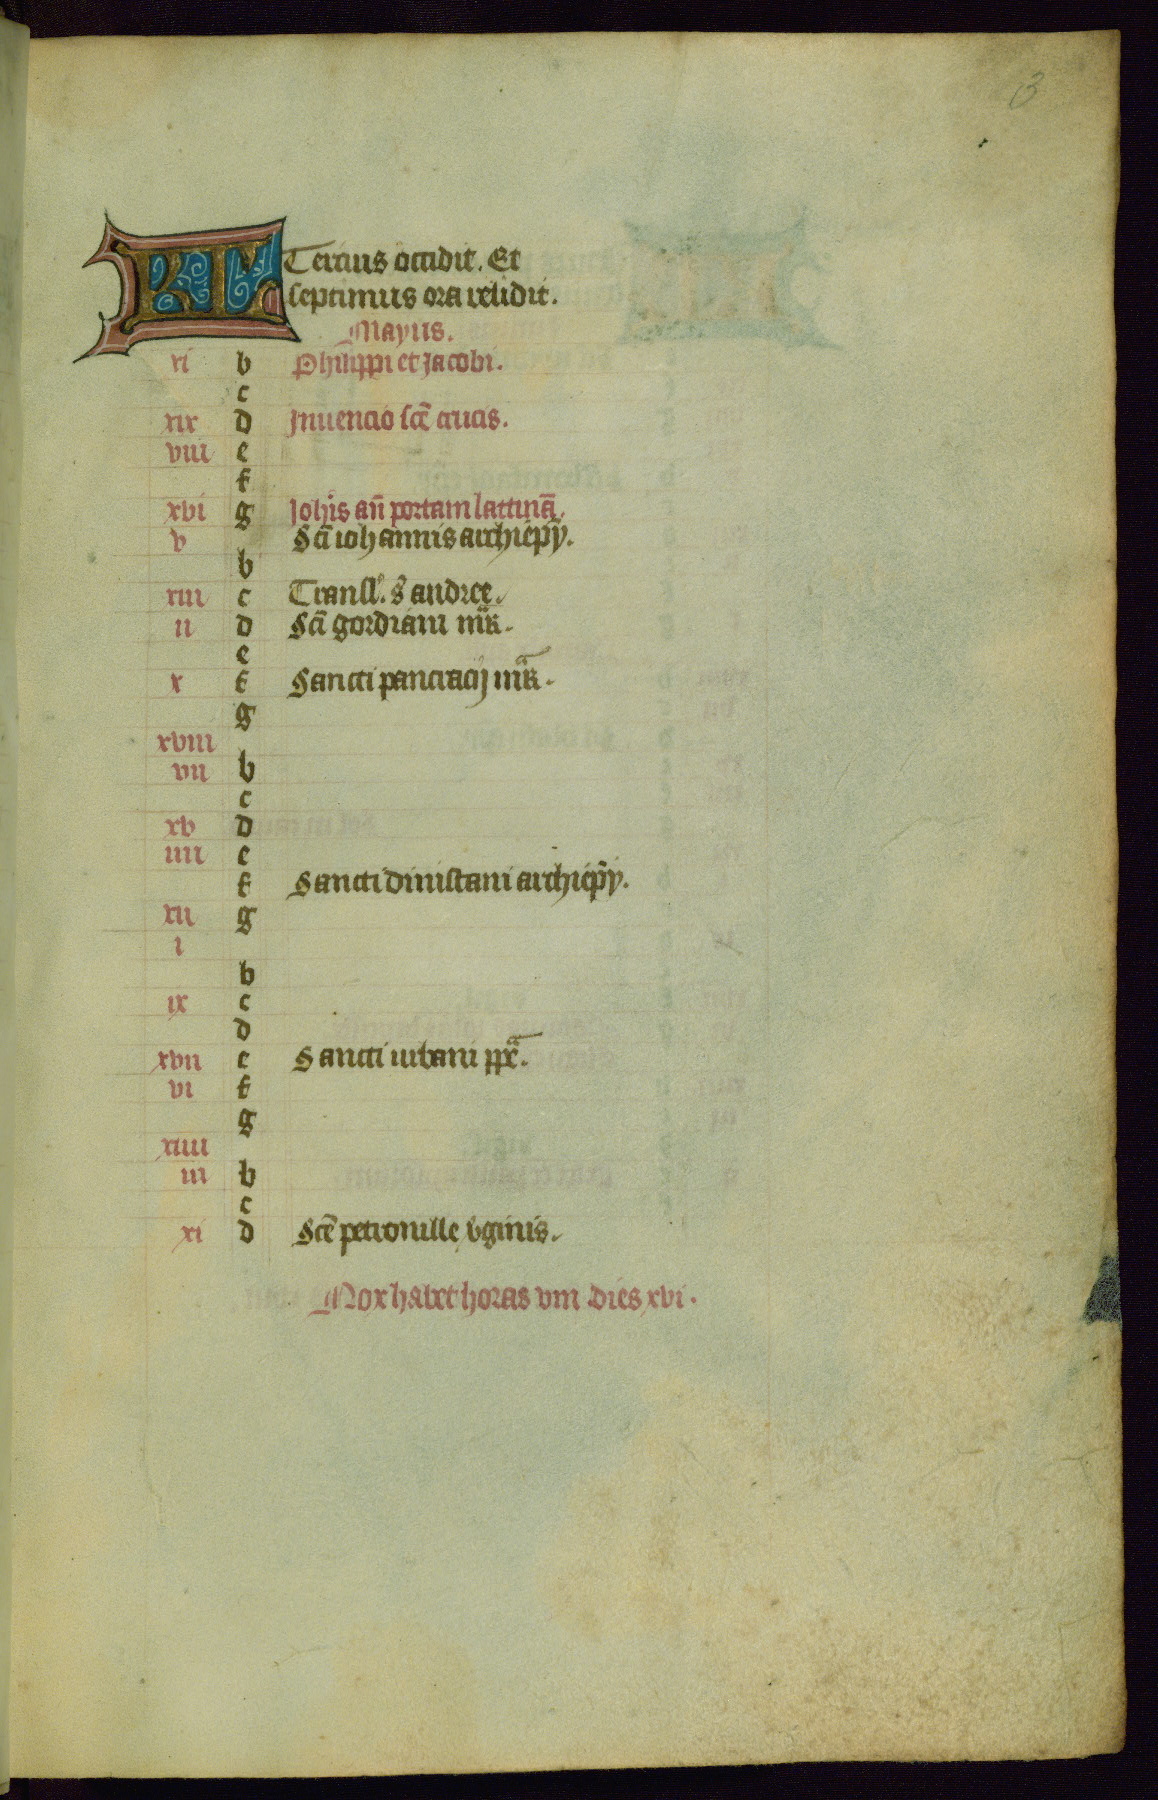 3
KL Tercius occidit. Et
septimus ora relidit.
Mayus.
xi b Philippi et Jacobi.
c
xix d Inuencio sce crucis.
viii e
f
xvi g Johis an portam lattina.
v Sci iohannis archiepy.
b
xiii c Transl. s andree.
ii d Sci gordiani mr.
e
x f Sancti pancracij mr.
g
xviii
vii b
c
xv d
iiii e
f Sancti dunistani archiepy.
xii g
i
b
ix c
d
xvii e Sancti urbani ppe.
vi f
g
xiiii
iii b
c
xi d Sce petronille vginis.
Nox habet horas viii dies xvi.